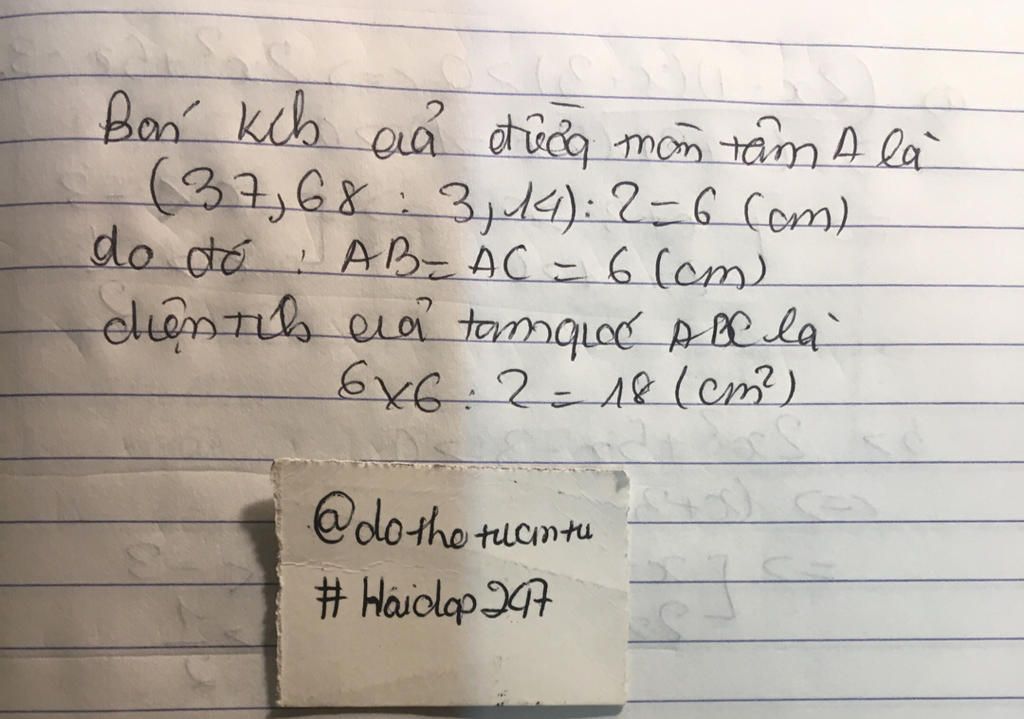 Bán kính của đường tròn tâm A là
(37,68 : 3,14) : 2 = 6 (cm)
do đó : AB = AC = 6 (cm)
diện tích của tam giác ABC là
6 x 6 : 2 = 18 (cm²)
@dothetuantu
# Hoidap247